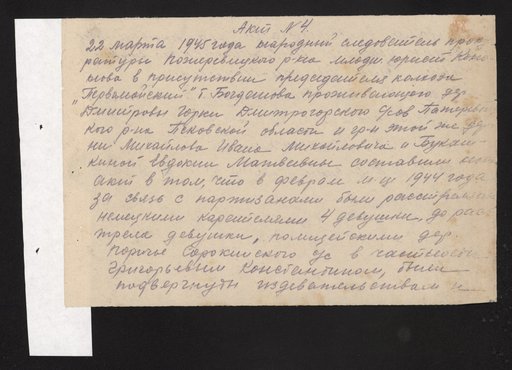 Акт № 4.
22 марта 1945 года народный следователь прок
ратуры Пожеревицкого р-на младш. юрист
в присутствии председателя колхоза
"Первомайский" т. Богданова проживающего дер.
Дмитровы Горки Дмитрогорского с/сов
кого р-на Псковской области и гр-н этой же дерев
ни Михайлова Ивана Михайловича и
киной Евдокии Матвеевны составили
акт в том, что в феврале м-це 1944 года
за связь с партизанами были расстреляны
немецкими карателями 4 девушки, до расс
трела девушки, полицейскими дер.
Поречье Сорокинского с/с в частности
Григорьевым Константином, были
подвергнуты издевательствам и